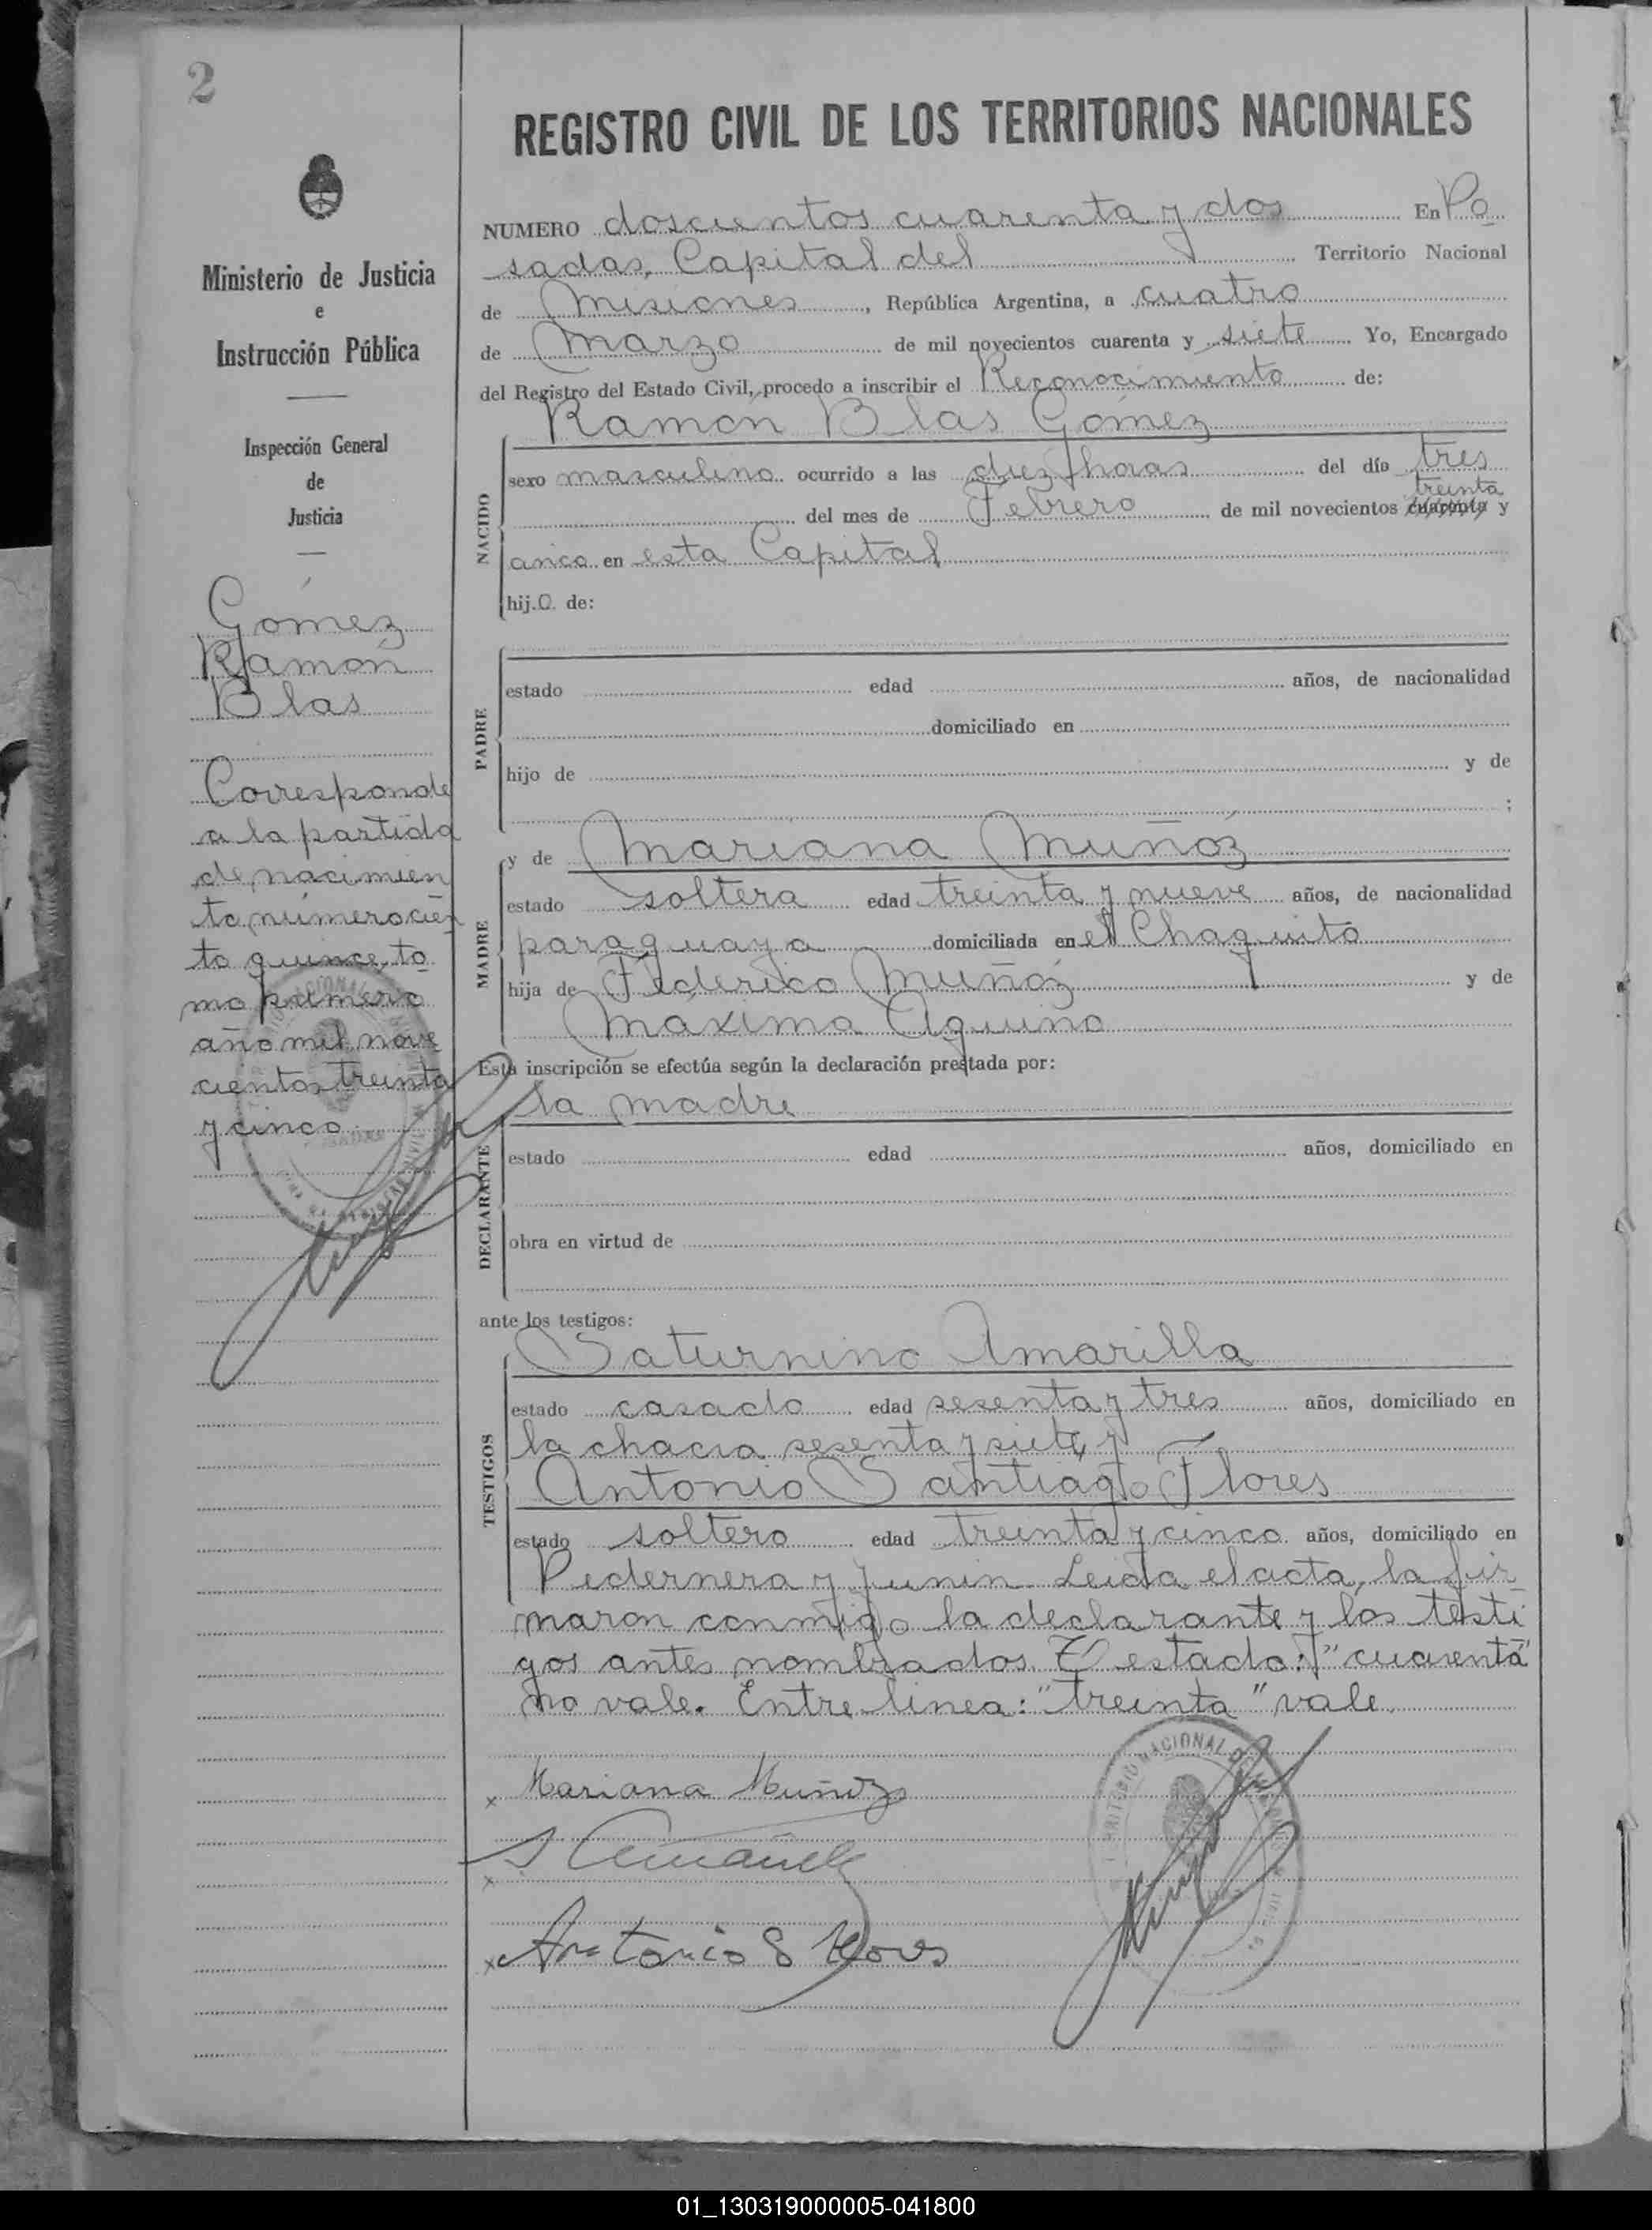 2
Ministerio de Justicia
e
Instrucción Pública
Inspección General
de
Justicia
Gómez
Ramón
Blas
Corresponde
a la partida
de nacimien
to número cien
to quince, to
mo primero
año mil nove
cientos treinta
y cinco
REGISTRO CIVIL DE LOS TERRITORIOS NACIONALES
NUMERO doscientos cuarenta y dos En Po
sadas, Capital del Territorio Nacional
de Misiones, República Argentina, a cuatro
de Marzo de mil novecientos cuarenta y siete Yo, Encargado
del Registro del Estado Civil, procedo a inscribir el Reconocimiento de:
Ramón Blas Gómez
NACIDO
sexo masculino ocurrido a las diez horas del día tres
treinta
del mes de Febrero de mil novecientos cuarenta y
cinco en esta Capital
hijo de:
PADRE
estado edad años, de nacionalidad
domiciliado en
hijo de y de
;
MADRE
y de Mariana Muñoz
estado soltera edad treinta y nueve años, de nacionalidad
paraguaya domiciliada en el Chaquito
hija de Federico Muñoz y de
Máxima Aquino
Esta inscripción se efectúa según la declaración prestada por:
la madre
DECLARANTE
estado edad años, domiciliado en
obra en virtud de
ante los testigos:
TESTIGOS
Saturnino Amarilla
estado casado edad sesenta y tres años, domiciliado en
la chacra sesenta y siete y
Antonio Santiago Flores
estado soltero edad treinta y cinco años, domiciliado en
Pedernera y Junin Leida el acta, la fir
maron conmigo la declarante y los testi
gos antes nombrados. Testado: "cuarenta"
no vale. Entre linea: "treinta" vale.
x Mariana Muñoz
x
x Antonio S Flores
01_130319000005-041800